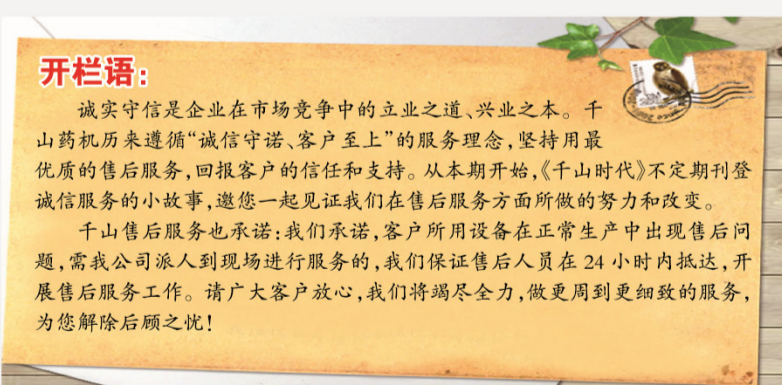 开栏语：
诚实守信是企业在市场竞争中的立业之道、兴业之本。千
山药机历来遵循“诚信守诺、客户至上”的服务理念，坚持用最
优质的售后服务，回报客户的信任和支持。从本期开始，《千山时代》不定期刊登
诚信服务的小故事，邀您一起见证我们在售后服务方面所做的努力和改变。
千山售后服务也承诺：我们承诺，客户所用设备在正常生产中出现售后问
题，需我公司派人到现场进行服务的，我们保证售后人员在 24 小时内抵达，开
展售后服务工作。请广大客户放心，我们将竭尽全力，做更周到更细致的服务，
为您解除后顾之忧！